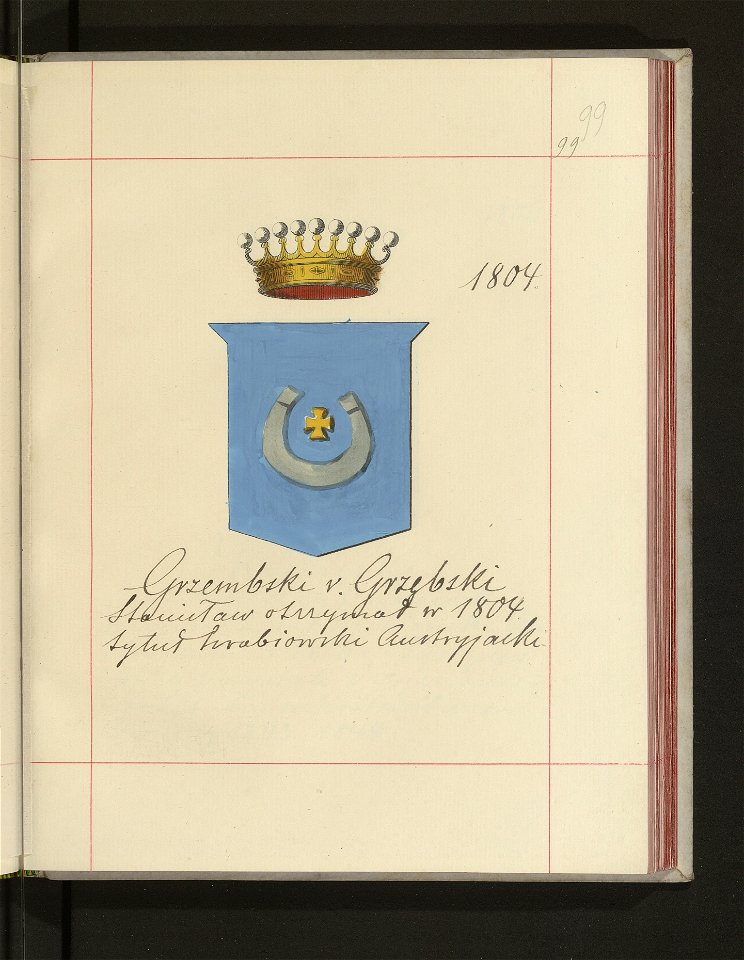 99
99
1804.
Grzembski v. Grzębski
Stanisław otrzymał w 1804
tytuł hrabiowski Austryjacki